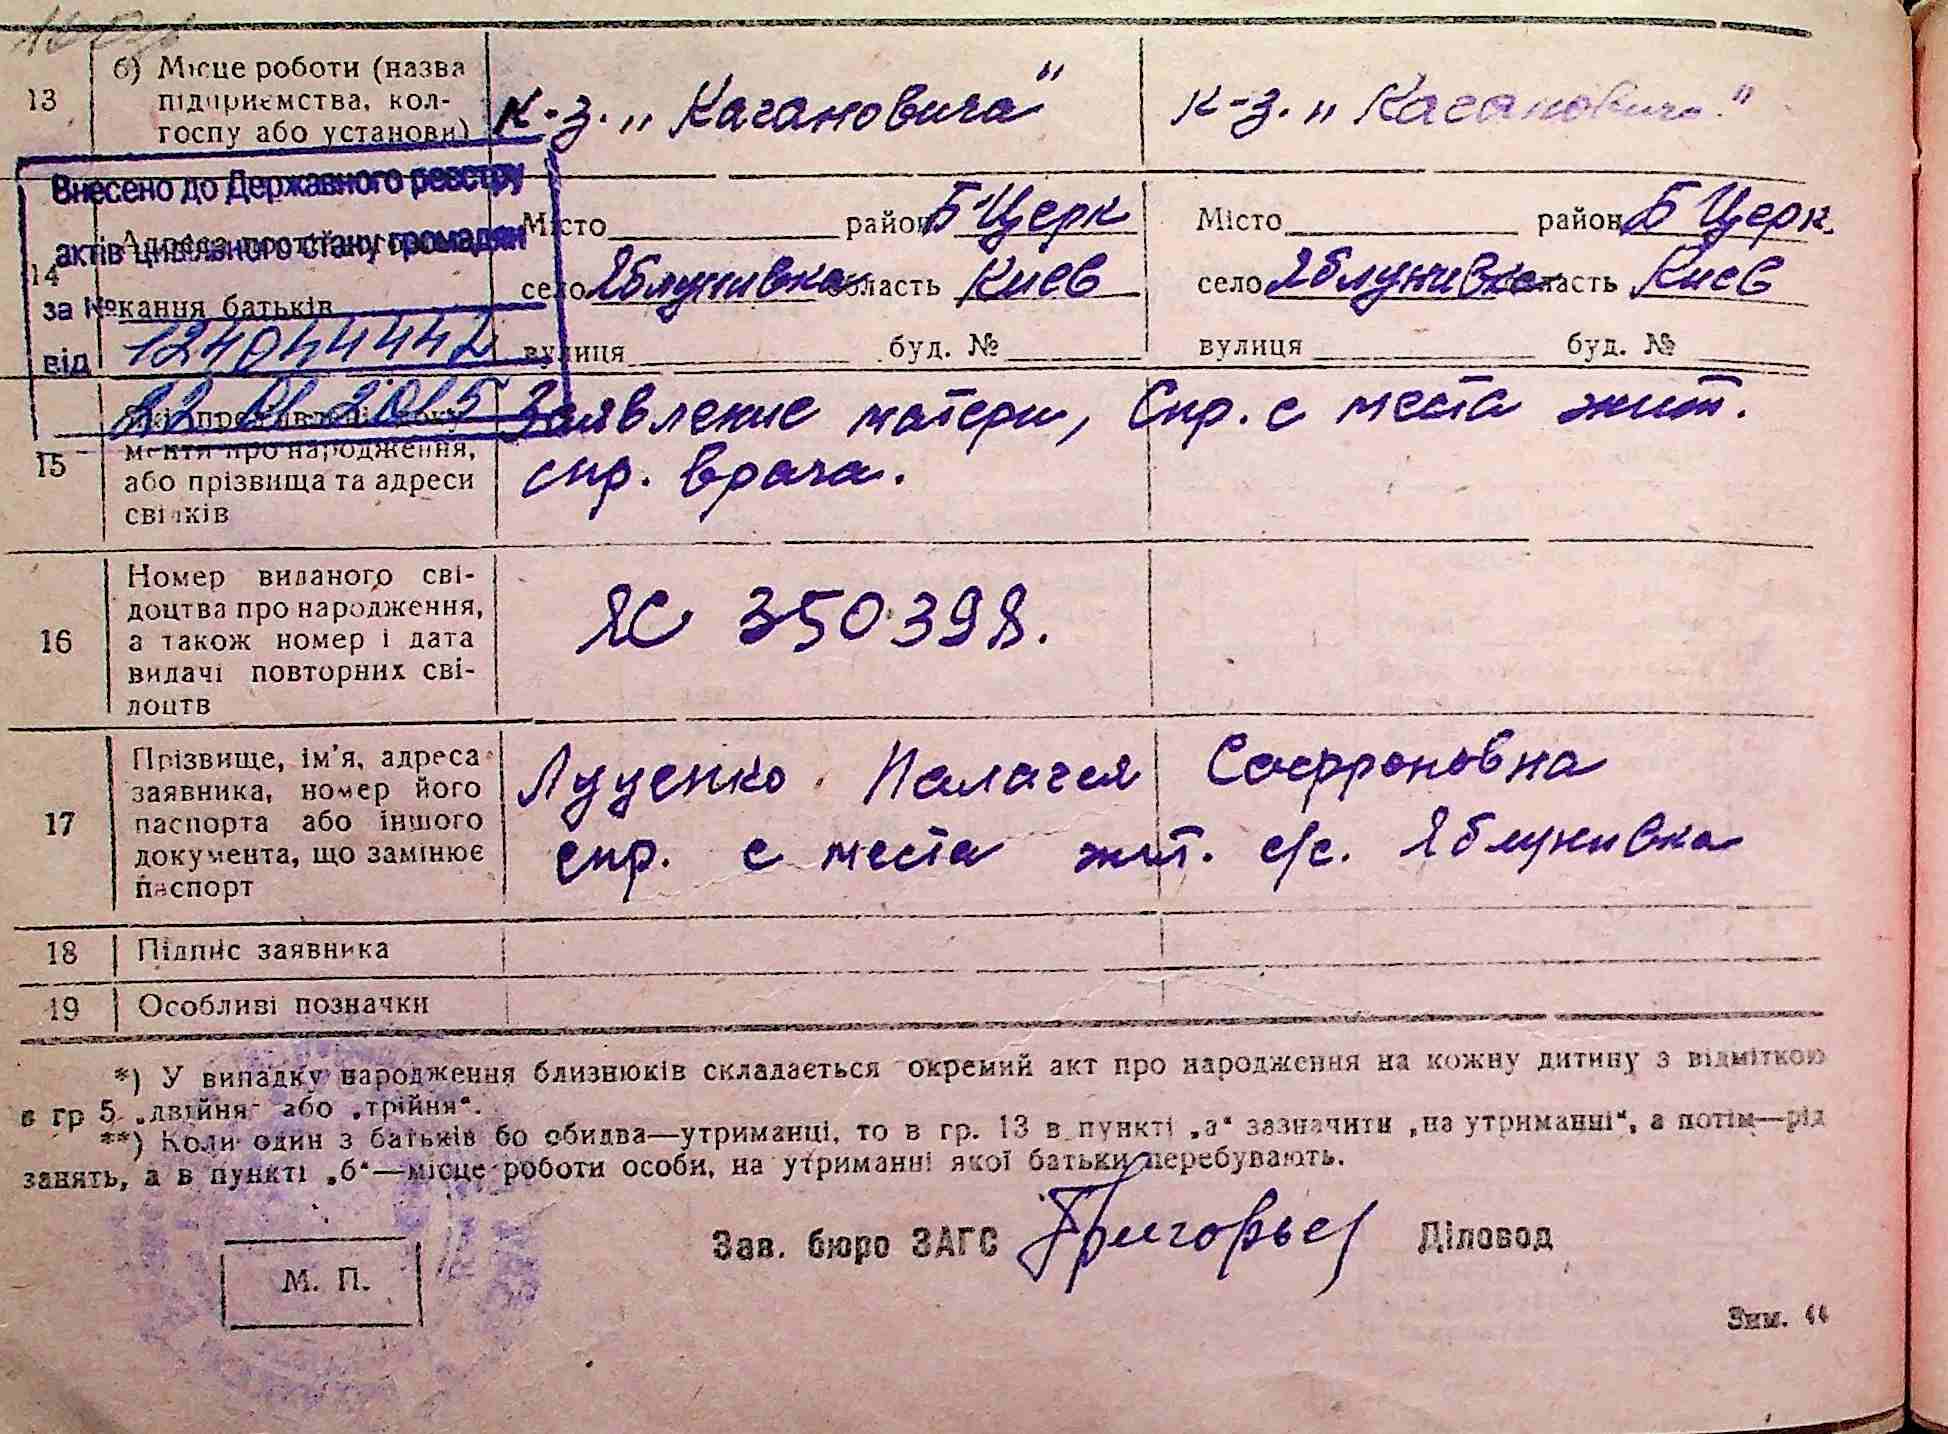 13
б) Місце роботи (назва
підприємства, кол-
госпу або установи)
к-з. „Кагановича"
к-з. „Кагановича"
Внесено до Державного реєстру
актів цивільного стану громадян
за №
124044442
від
22 01 2015
14
кання батьків
Місто район Б Церк
село Яблунивка область Киев
вулиця буд. №
Місто район Б Церк.
село Яблунивка область Киев
вулиця буд. №
15
менти про народження,
або прізвища та адреси
свідків
Заявление матери, Спр. с места жит.
спр. врача.
16
Номер виданого сві-
доцтва про народження,
а також номер і дата
видачі повторних сві-
доцтв
ЯС 350398.
17
Прізвище, ім'я, адреса
заявника, номер його
паспорта або іншого
документа, що замінює
паспорт
Луценко Палагея Софроновна
спр. с места жит. с/с. Яблунивка
18 Підпис заявника
19 Особливі позначки
*) У випадку народження близнюків складається окремий акт про народження на кожну дитину з відміткою
в гр 5 „двійня" або „трійня".
**) Коли один з батьків бо обидва—утриманці, то в гр. 13 в пункті „а" зазначити „на утриманні", а потім—рід
занять, а в пункті „б"—місце роботи особи, на утриманні якої батьки перебувають.
Зав. бюро ЗАГС Григорьев Діловод
М. П.
Зим. 44